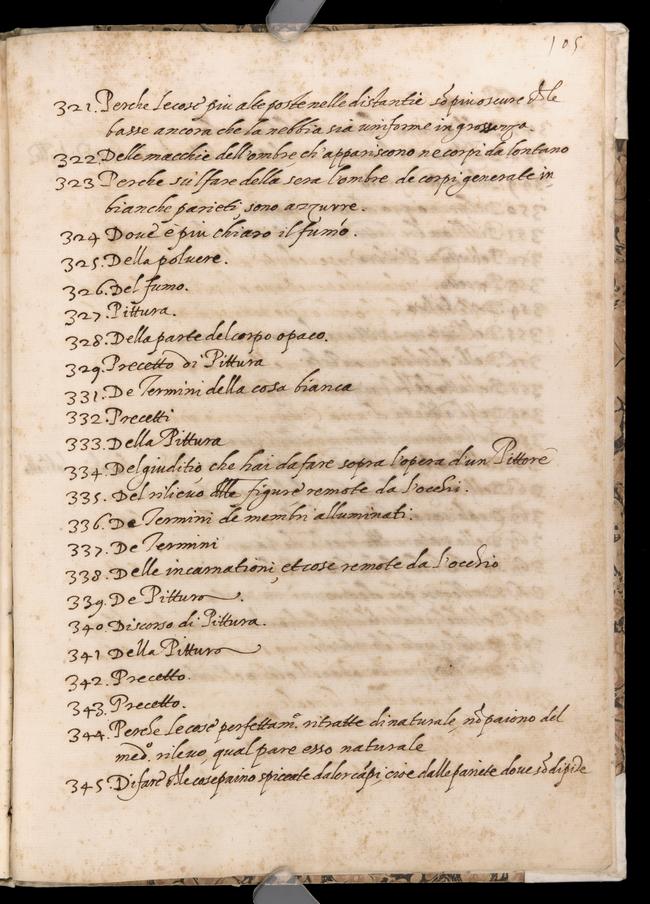 105
321. Perche le cose piu alte poste nelle distantie sõ piu oscure ch̃ le
basse ancora che la nebbia sia uniforme in grossezza.
322. Delle macchie dell'ombre ch'appariscono ne corpi da lontano
323 Perche sú'l fare della sera l'ombre de corpi generate in
bianche parieti, sono azzurre.
324 Dove è piu chiaro il fumo.
325. Della poluere.
326. Del fumo.
327. Pittura.
328. Della parte del corpo opaco.
329. Precetto di Pittura
331. De Termini della cosa bianca
332. Precetti
333. Della Pittura
334. Del giuditio che hai da fare sopra l'opera d'un Pittore
335. Del rilieuo delle figure remote da l'occhi.
336. De Termini de membri alluminati.
337. De Termini
338. Delle incarnationi, et cose remote da l'occhio
339. De Pittura.
340. Discorso di Pittura.
341 Della Pittura
342. Precetto.
343. Precetto.
344. Perche le cose perfettamᵉ. ritratte di naturale, nõ paiono del
medº. rileuo, qual pare esso naturale
345. Di fare ch̃ le cose paino spiccate da lor cãpi, cioe dalle pariete dove sõ